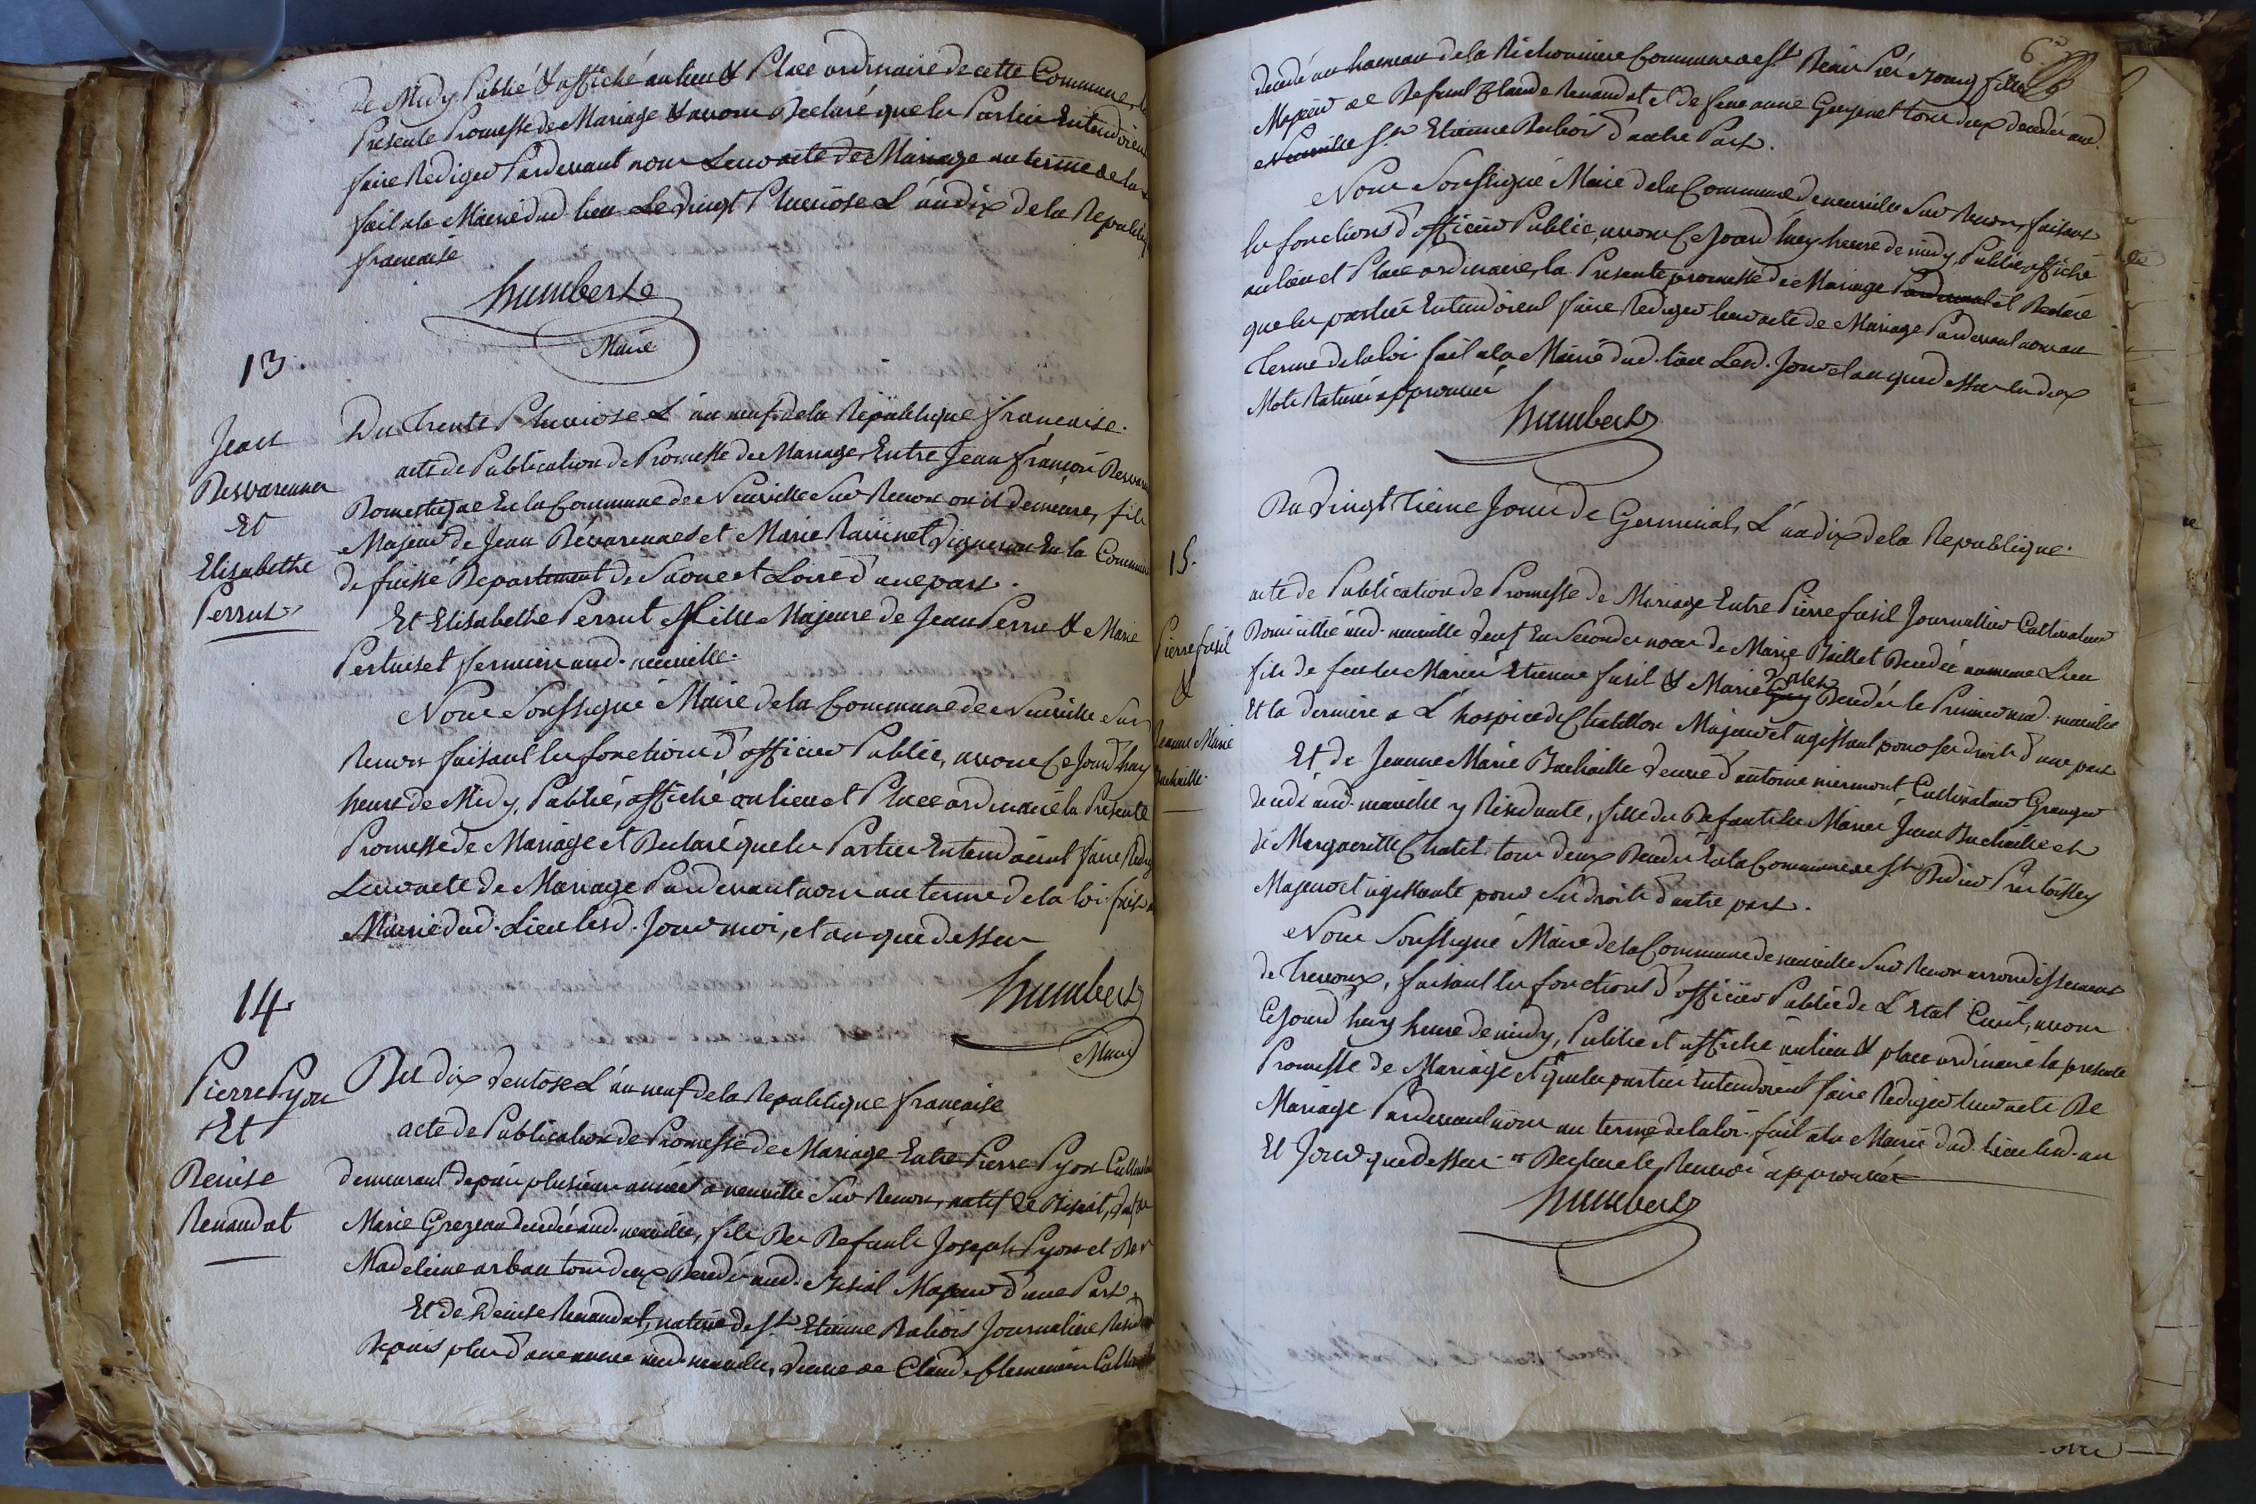 de Midy Publié & affiché au lieu & Place ordinaire de cette Commune, la
Presente Promesse de Mariage & avons Declaré que les Parties Entendoient
faire Rediger Pardevant nous Leur acte de Mariage au terme de la
fait a la Mairie dud. lieu Le vingt Pluviose L'an dix de la Republique
française
humbert
Maire
13.
Jean
Desvarennes
Et
Elisabethe
Perrut
Du Trente Pluviose L'an neuf de la Republique française.
acte de Publication de Promesse de Mariage, Entre Jean françois
Domestique En la Commune de Neuville Sur Renon ou il demeure, fils
Majeur de Jean Dévarennes et Marie Vigneron En la Commune
de fuissé Departement de Saone et Loire d'une part.
Et Elisabethe Perrut fille Majeure de Jean Perru & Marie
Pertuiset fermier aud. neuville.
Nous Soussigné Maire de la Commune de Neuville Sur
Renon faisant les fonctions d'officier Public, avons Ce jourd'huy
heure de Midy, Publié, affiché au lieu et Place ordinaire la Presente
Promesse de Mariage et Declaré que les Parties Entendoient faire
Leur acte de Mariage Pardevant nous au terme de la loi. fait a
Mairie dud. Lieu lesd. Jour moi, et an que dessus
humbert
Maire
14
Pierre Pyon
Et
Denise
Renaudat
Du dix Ventose L'an neuf de la Republique française
acte de Publication de Promesse de Mariage Entre Pierre Pyon
demeurant depuis plusieurs années a neuville Sur Renon, natif de
Marie aud. neuville, fils Des Defunts Joseph Pyon et De
Madeleine arban tous deux Decedés aud. Majeur d'une Part
Et de Denise Renaudat, native de St Etienne Dubois Journaliere
Depuis plus d'une année aud. neuville, veuve de Claude
6
decedé au hameau de la Richonniere Commune de St
Majeur de Defunt Claude Renaudat et de feue anne tous deux decedés aud.
St Etienne Dubois d'autre Part.
Nous Soussigné Maire de la Commune de neuville Sur Renon, faisant
les fonctions d'officier Public, avons Ce Jourd'huy heure de midy, Publié, affiché
au lieu et Place ordinaire, la Presente promesse de Mariage Pardevant et Declaré
que les parties Entendoient faire Rediger leur acte de Mariage Pardevant nous au
Terme de la loi. fait a la Mairie dud. lieu Lesd. Jour et an que dessus les deux
Mots Raturés approuvés
humbert
Du vingtieme Jour de Germinal, L'an dix de la Republique.
15.
Pierre fusil
&
Jeanne Marie
Buchaille.
acte de Publication de Promesse de Mariage Entre Pierre fusil Journallier Cultivateur
Domicillié aud. neuville veuf En Secondes noces de Marie Decedée au meme Lieu
fils de feu les Mariés Etienne fusil & Marie Decedés le Premier aud. neuville
Et la derniere a L'hospice de Chatillon Majeur et agissant pour ses droits d'une part
Et de Jeanne Marie Buchaille veuve d'antoine niermont Cultivateur Granger
decedé aud. neuville y Residante, fille des Defunts les Mariés Jean Buchaille et
de Margueritte Chatel tous deux Decedés En la Commune de St Didier
Majeure et agissante pour Ses droits d'autre part.
Nous Soussigné Maire de la Commune de neuville Sur Renon arrondissement
de Trevoux, faisant les fonctions d'officier Public de L'Etat Civil, avons
Ce jourd'huy heure de midy, Publié et affiché au lieu & place ordinaire la presente
Promesse de Mariage et que les parties Entendoient faire Rediger leur acte De
Mariage Pardevant nous au terme de la loi. fait a la Mairie dud. Lieu lesd. an
Et Jour que dessus Declaré le Renvoi approuvé
humbert